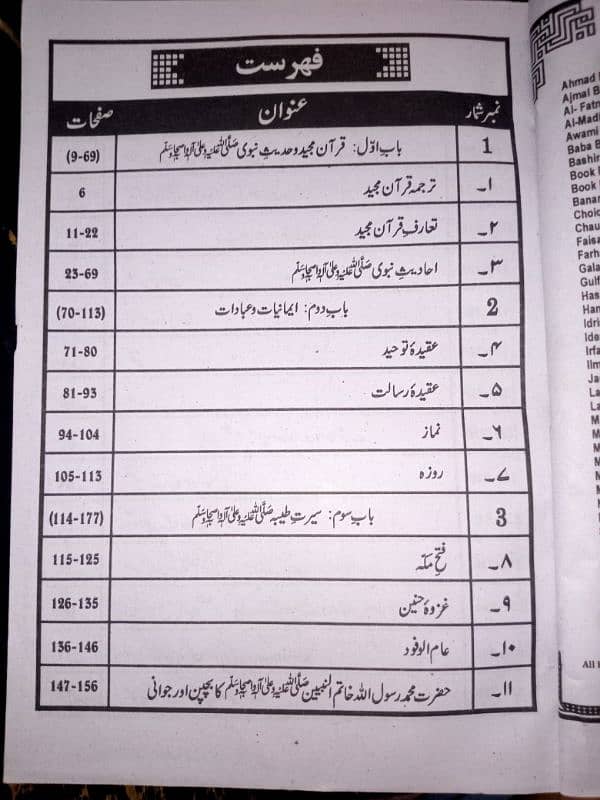 فہرست
نمبر شمار عنوان صفحات
1 باب اوّل: قرآن مجید و حدیثِ نبوی صَلَّى اللهُ عَلَيْهِ وَعَلٰى آلِهٖ وَاَصْحَابِهٖ وَسَلَّمَ (9-69)
۱۔ ترجمہ قرآن مجید 6
۲۔ تعارفِ قرآن مجید 11-22
۳۔ احادیثِ نبوی صَلَّى اللهُ عَلَيْهِ وَعَلٰى آلِهٖ وَاَصْحَابِهٖ وَسَلَّمَ 23-69
2 باب دوم: ایمانیات و عبادات (70-113)
۴۔ عقیدۂ توحید 71-80
۵۔ عقیدۂ رسالت 81-93
۶۔ نماز 94-104
۷۔ روزہ 105-113
3 باب سوم: سیرتِ طیبہ صَلَّى اللهُ عَلَيْهِ وَعَلٰى آلِهٖ وَاَصْحَابِهٖ وَسَلَّمَ (114-177)
۸۔ فتحِ مکّہ 115-125
۹۔ غزوۂ حنین 126-135
۱۰۔ عام الوفود 136-146
۱۱۔ حضرت محمد رسول اللہ خاتم النبیین صَلَّى اللهُ عَلَيْهِ وَعَلٰى آلِهٖ وَاَصْحَابِهٖ وَسَلَّمَ کا بچپن اور جوانی 147-156
Ahmad
Ajmal B
Al- Fatn
Al-Madi
Awami
Baba B
Bashir
Book
Book
Banar
Choic
Chau
Faisa
Farh
Gala
Gulf
Has
Har
Idri
Ide
Irfa
Ilm
Ja
La
La
M
M
M
M
M
All